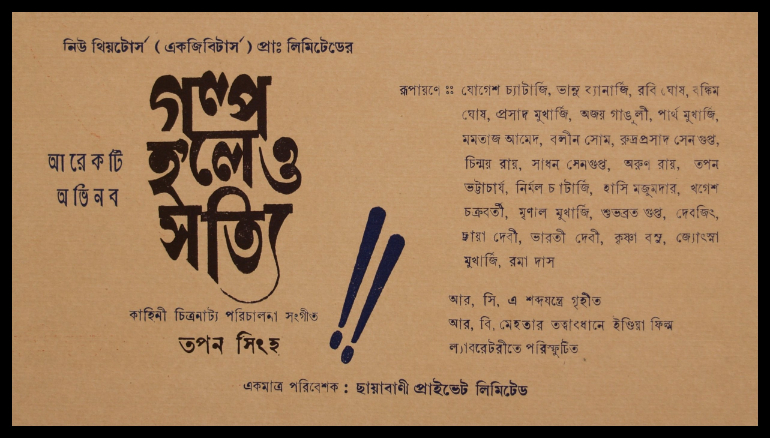 নিউ থিয়টোর্স (একজিবিটার্স) প্রাঃ লিমিটেডের
আরেকটি
অভিনব
গল্প
হ'লেও
সত্যি
!!
কাহিনী চিত্রনাট্য পরিচালনা সংগীত
তপন সিংহ
রূপায়ণে ঃঃ যোগেশ চ্যাটার্জি, ভানু ব্যানার্জি, রবি ঘোষ, বঙ্কিম
ঘোষ, প্রসাদ মুখার্জি, অজয় গাঙুলী, পার্থ মুখার্জি,
মমতাজ আমেদ, বলীন সোম, রুদ্রপ্রসাদ সেনগুপ্ত,
চিন্ময় রায়, সাধন সেনগুপ্ত, অরুণ রায়, তপন
ভট্টাচার্য, নির্মল চ্যাটার্জি, হাসি মজুমদার, খগেশ
চক্রবর্তী, মৃণাল মুখার্জি, শুভব্রত গুপ্ত, দেবজিৎ,
ছায়া দেবী, ভারতী দেবী, কৃষ্ণা বসু, জ্যোৎস্না
মুখার্জি, রমা দাস
আর, সি, এ শব্দযন্ত্রে গৃহীত
আর, বি, মেহতার তত্বাবধানে ইণ্ডিয়া ফিল্ম
ল্যাবরেটরীতে পরিস্ফুটিত
একমাত্র পরিবেশক : ছায়াবাণী প্রাইভেট লিমিটেড